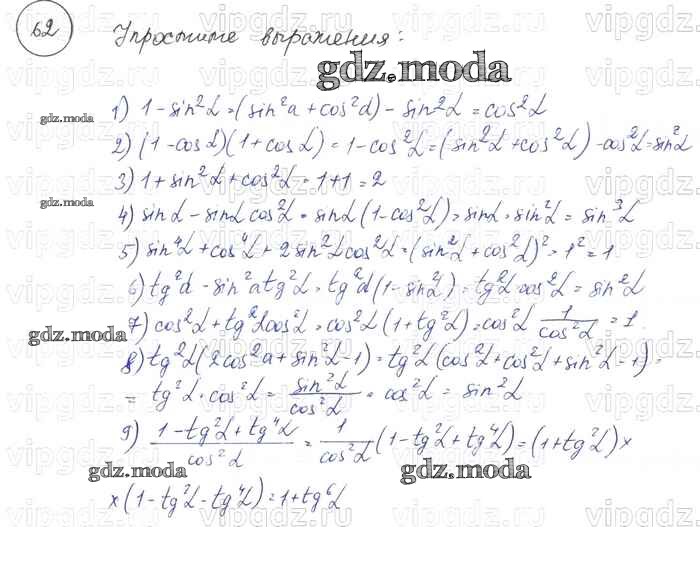 62 Упростите выражения:
gdz.moda
1) 1-sin²α=(sin²a+cos²α)-sin²α=cos²α
gdz.moda
2) (1-cosα)(1+cosα)=1-cos²α=(sin²α+cos²α)-cos²α=sin²α
3) 1+sin²α+cos²α=1+1=2
gdz.moda
4) sinα-sinα cos²α=sinα(1-cos²α)=sinα·sin²α=sin³α
5) sin⁴α+cos⁴α+2sin²αcos²α=(sin²α+cos²α)²=1²=1.
6) tg²α-sin²αtg²α=tg²α(1-sin²α)=tg²α·cos²α=sin²α
7) cos²α+tg²αcos²α=cos²α(1+tg²α)=cos²α 1/cos²α=1.
gdz.moda
8) tg²α(2cos²a+sin²α-1)=tg²α(cos²α+cos²α+sin²α-1)=
=tg²α·cos²α=sin²α/cos²α·cos²α=sin²α
9) (1-tg²α+tg⁴α)/cos²α=1/cos²α(1-tg²α+tg⁴α)=(1+tg²α)×
gdz.moda gdz.moda
×(1-tg²α-tg⁴α)=1+tg⁶α